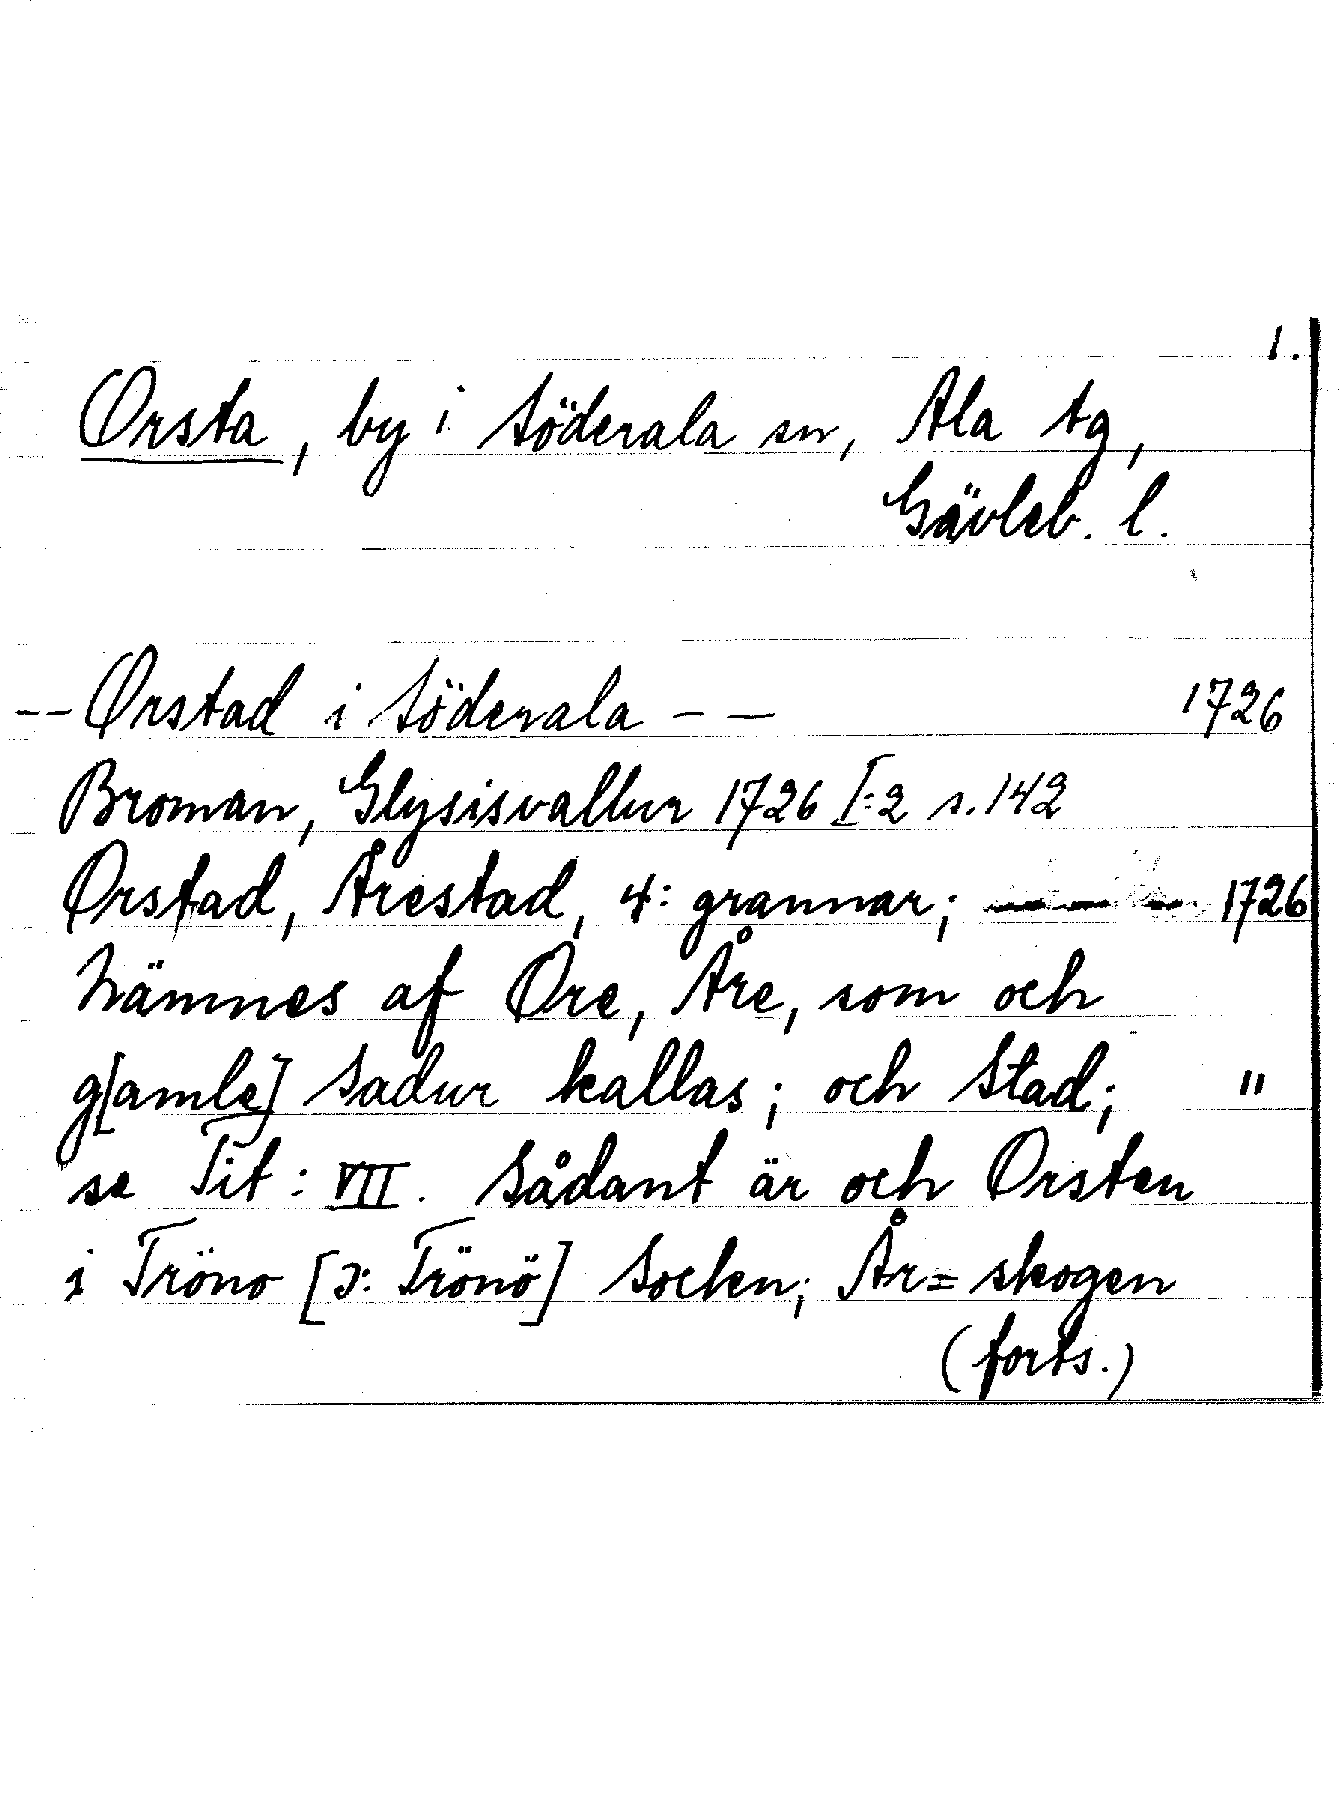 1.
Orsta, by i Söderala sn, Ala tg,
Gävleb. l.
-- Orstad i Söderala - - 1726
Broman, Glysisvallur 1726 I:2 s. 142
Orstad, Årestad, 4: grannar; — — — 1726
nämnes af Ore, Åre, som och
g[amle] Sadur kallas; och Stad; "
se Tit: VII. Sådant är och Orsten
i Tröno [ɔ: Trönö] Socken; År= skogen
(forts.)